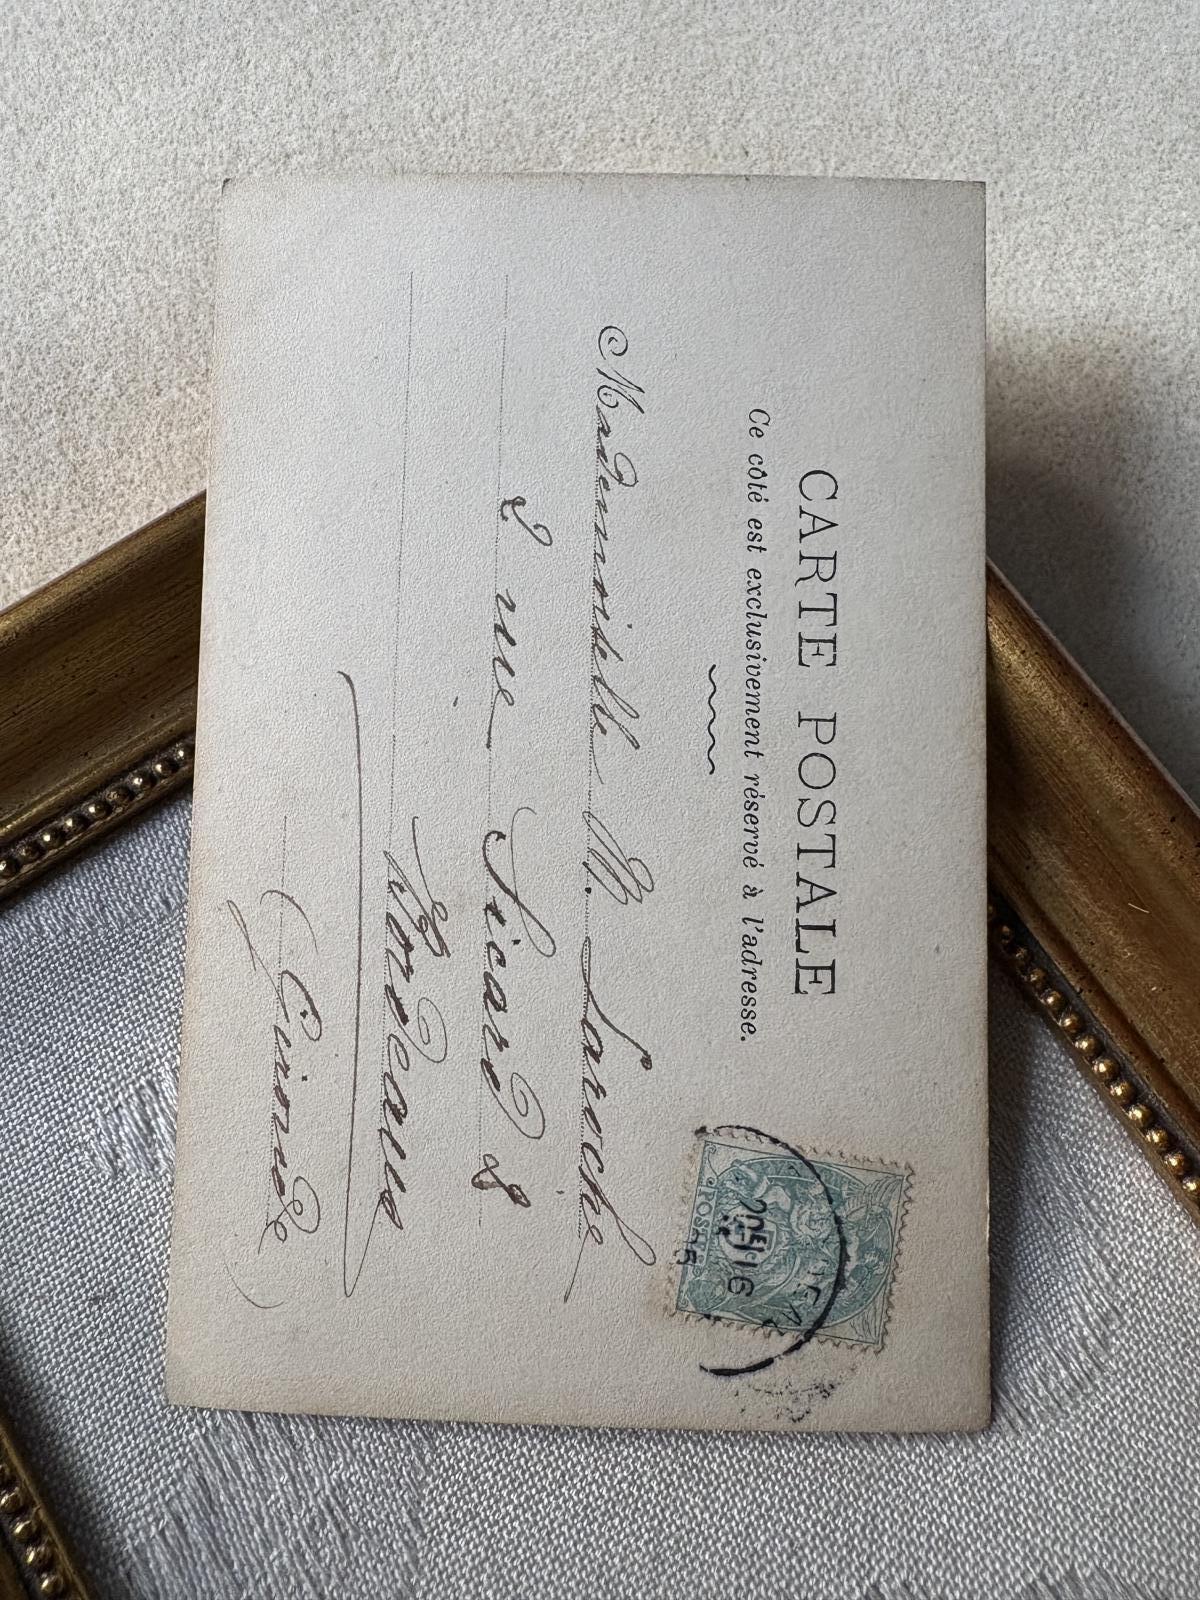 CARTE POSTALE
Ce côté est exclusivement réservé à l'adresse.
Mademoiselle M. Laroche
8 rue Sicard 8
Bordeaux
(Gironde)
POSTES